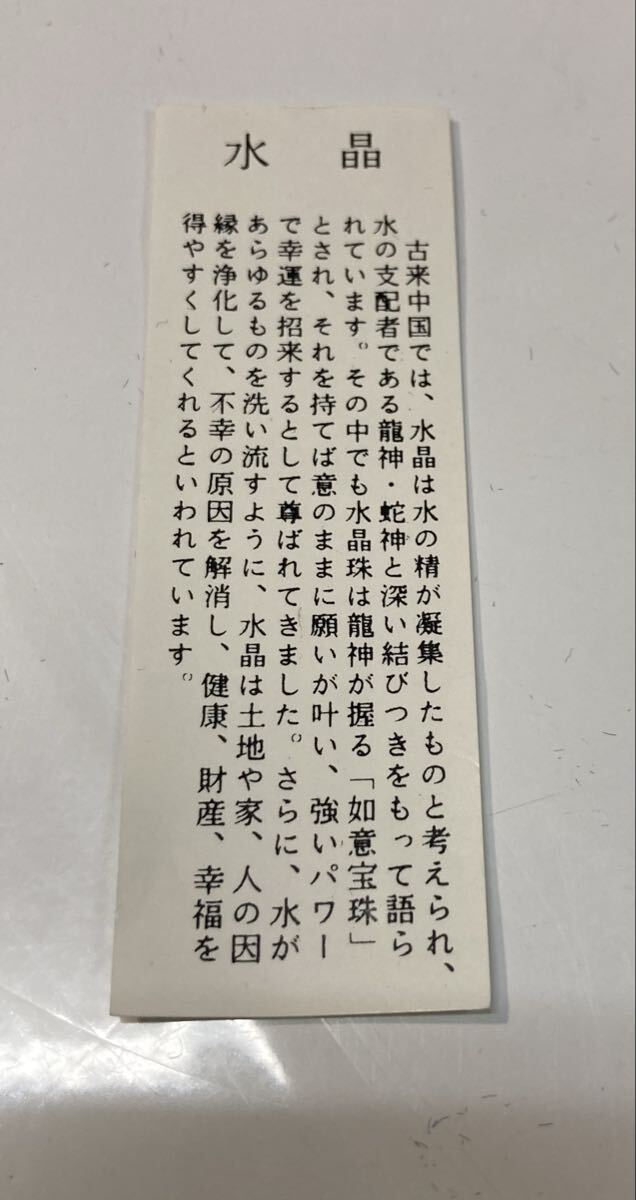 水晶
古来中国では、水晶は水の精が凝集したものと考えられ、
水の支配者である龍神・蛇神と深い結びつきをもって語ら
れています。その中でも水晶珠は龍神が握る「如意宝珠」
とされ、それを持てば意のままに願いが叶い、強いパワー
で幸運を招来するとして尊ばれてきました。さらに、水が
あらゆるものを洗い流すように、水晶は土地や家、人の因
縁を浄化して、不幸の原因を解消し、健康、財産、幸福を
得やすくしてくれるといわれています。